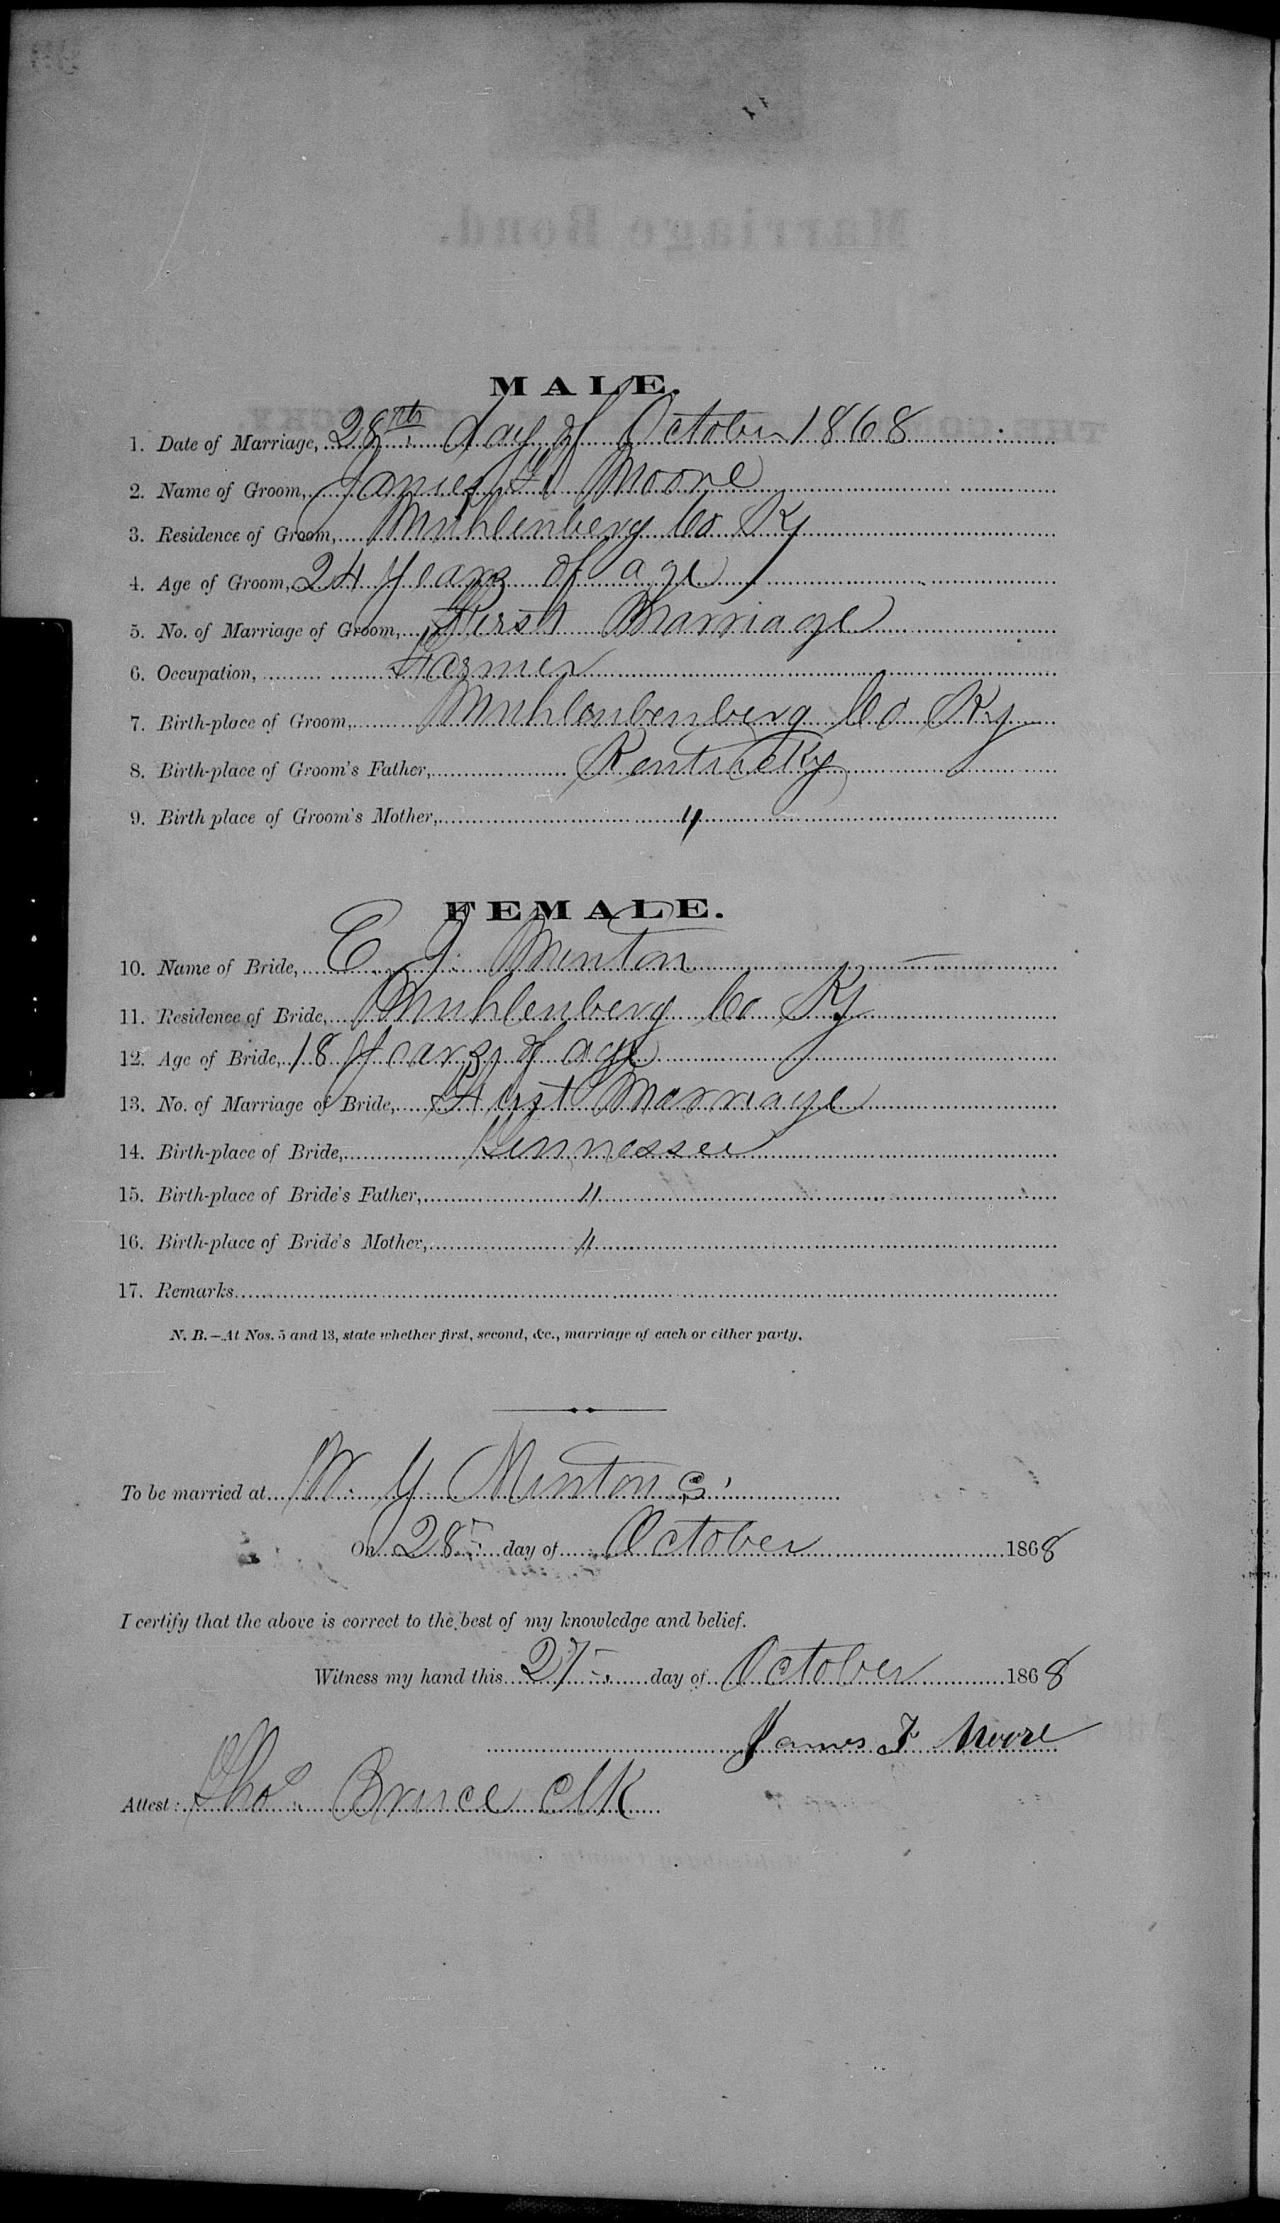 MALE.
1. Date of Marriage, 28th day of October 1868
2. Name of Groom, James F. Moore
3. Residence of Groom, Muhlenberg Co Ky
4. Age of Groom, 24 years of age
5. No. of Marriage of Groom, First Marriage
6. Occupation, Farmer
7. Birth-place of Groom, Muhlenbenberg Co Ky
8. Birth-place of Groom's Father, Kentucky
9. Birth place of Groom's Mother, "
FEMALE.
10. Name of Bride, E. J. Minton
11. Residence of Bride, Muhlenberg Co Ky
12. Age of Bride, 18 years of age
13. No. of Marriage of Bride, First Marriage
14. Birth-place of Bride, Tennessee
15. Birth-place of Bride's Father, "
16. Birth-place of Bride's Mother, "
17. Remarks
N. B.—At Nos. 5 and 13, state whether first, second, &c., marriage of each or either party.
To be married at W. Y Minton s'
On 28 day of October 1868
I certify that the above is correct to the best of my knowledge and belief.
Witness my hand this 27 day of October 1868
James F Moore
Attest: Thos Bruce Clk